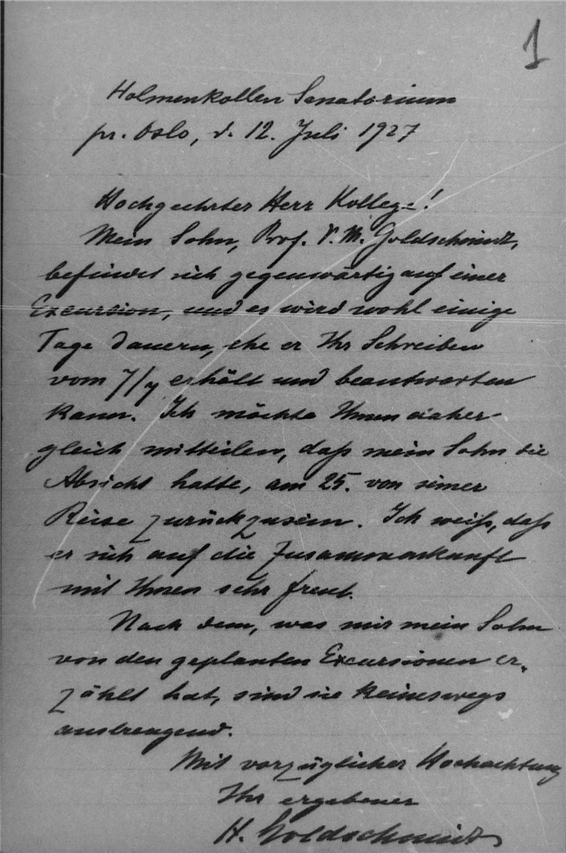 1
Holmenkollen Sanatorium
pr. Oslo, d. 12. Juli 1927
Hochgeehrter Herr Kollege!
Mein Sohn, Prof. V. M. Goldschmidt,
befindet sich gegenwärtig auf einer
Excursion, und es wird wohl einige
Tage dauern, ehe er Ihr Schreiben
vom 7/7 erhält und beantworten
kann. Ich möchte Ihnen daher
gleich mitteilen, daß mein Sohn die
Absicht hatte, am 25. von seiner
Reise zurückzusein. Ich weiß, daß
er sich auf die Zusammenkunft
mit Ihnen sehr freut.
Nach dem, was mir mein Sohn
von den geplanten Excursionen er-
zählt hat, sind sie keineswegs
anstrengend.
Mit vorzüglicher Hochachtung
Ihr ergebener
H. Goldschmidt